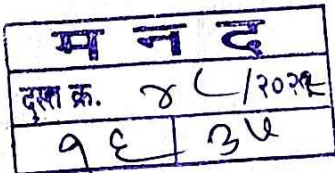 म न द
दस्त क्र. ४८/२०२२
१६ ३५